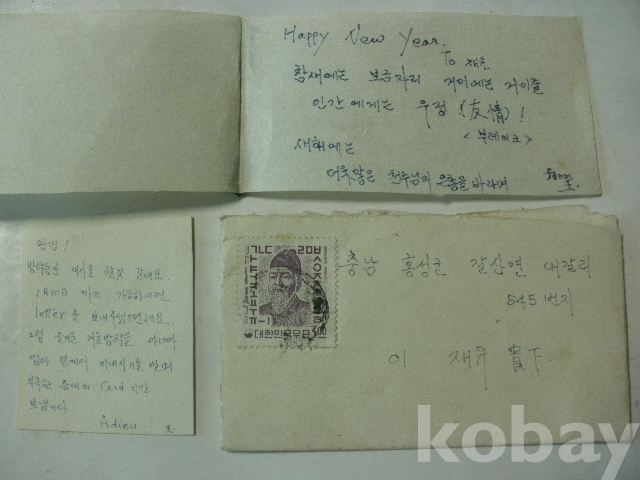 Happy New Year.
To 재유
참새에는 보금자리 거미에는 거미줄
인간에게는 우정(友情)!
<부레이크>
새해에는
더욱 많은 천주님의 은총을 바라며
안녕!
방학동안 이사를 할것 같애요
까지 가능하다면
letter를 보내주셨으면해요...
그럼 즐거운 겨울방학을
엄마 곁에서 지내시기를 빌며
부족한 솜씨의 Card 지만
보냅니다
Adieu...
충남 홍성군 갈산면 대갈리
545 번지
이 재유 貴下
대한민국우표
kobay